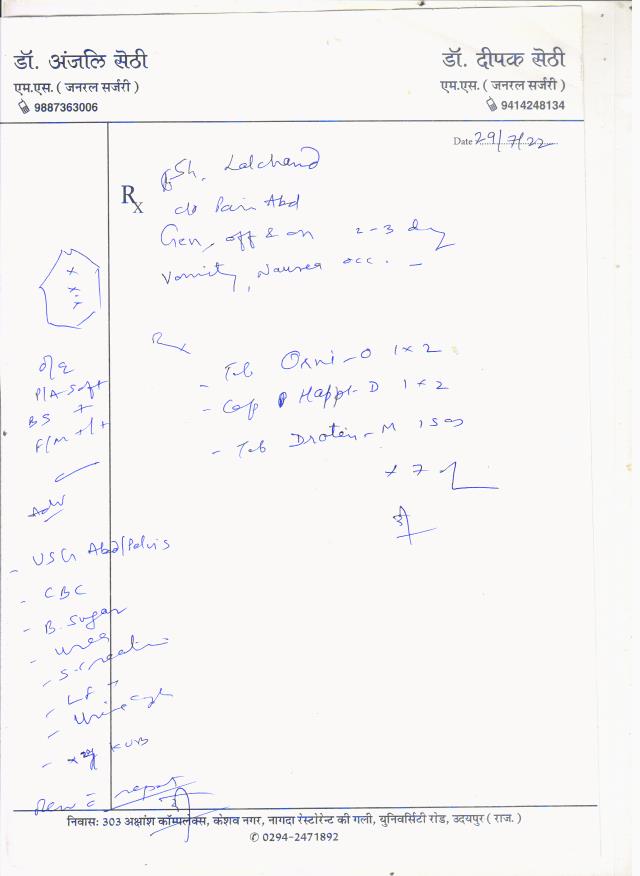 डॉ. अंजलि सेठी
एम.एस. ( जनरल सर्जरी )
9887363006
डॉ. दीपक सेठी
एम.एस. ( जनरल सर्जरी )
9414248134
Date 29/7/22
Rx
Sh. Lalchand
c/o Pain Abd
Gen, off & on 2-3 day
Vomity, Nausea occ. -
Rx
- Tab Orni-O 1x2
- Cap Happi-D 1x2
- Tab Drotin-M 1 SOS
x 7
O/E
P/A Soft
BS +
F/M +/+
Adv
- USG Abd/Pelvis
- CBC
- B. Sugar
- Urea
- S. Creatin
- LFT
- Urine
- X ray KUB
Rev c̄ report
निवास: 303 अक्षांश कॉम्पलेक्स, केशव नगर, नागदा रेस्टोरेन्ट की गली, युनिवर्सिटी रोड, उदयपुर ( राज. )
✆ 0294-2471892